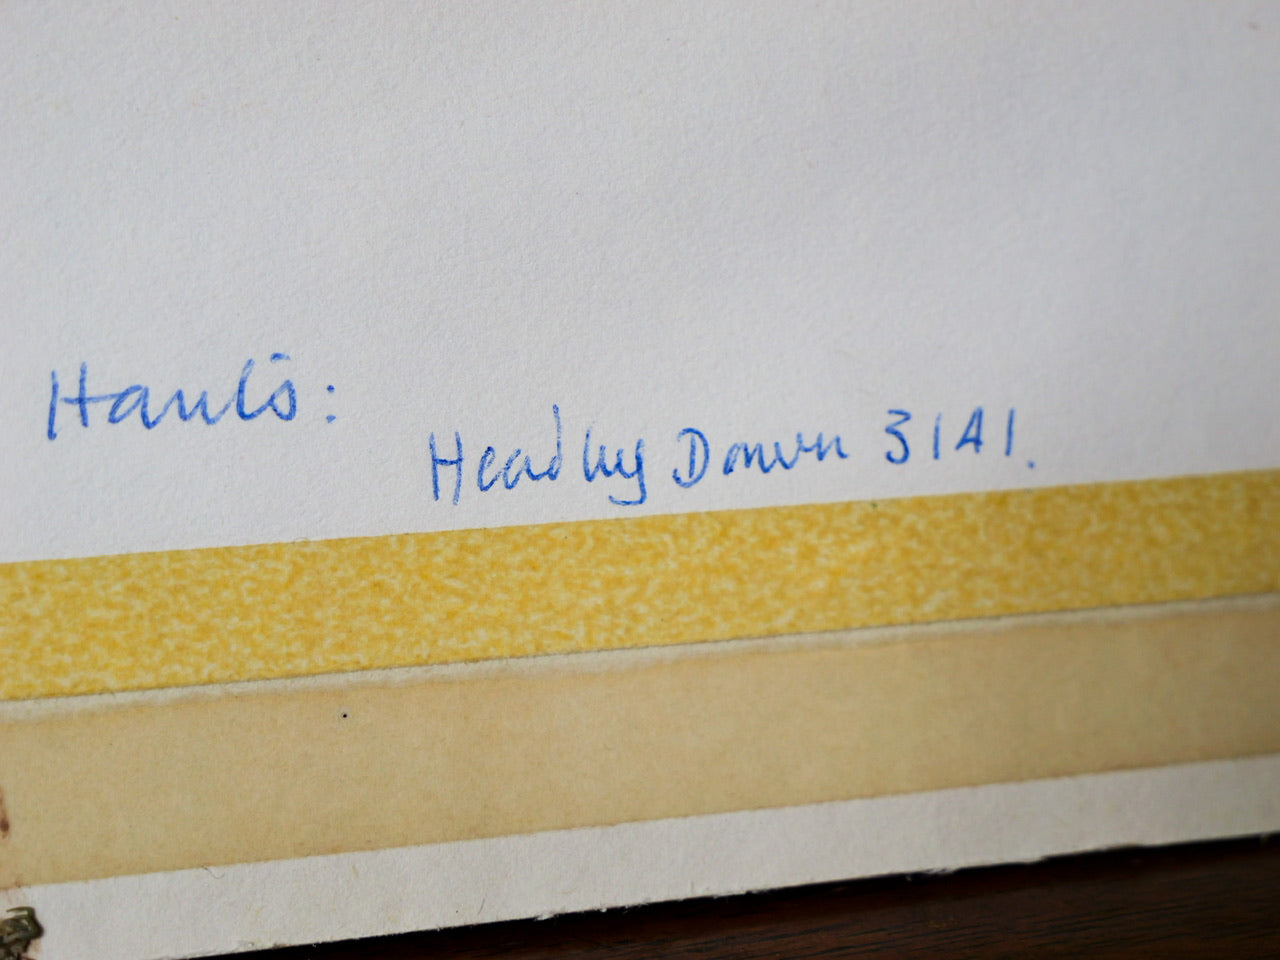 Hants:
Headley Down 3141.